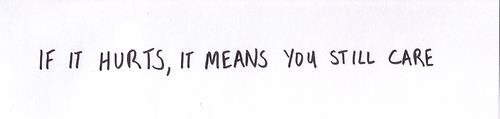 IF IT HURTS, IT MEANS YOU STILL CARE